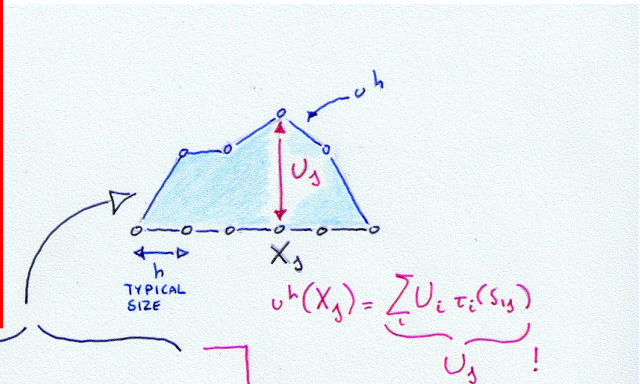 u^h
U_j
X_j
h
TYPICAL
SIZE
u^h(X_j) = Σ_i U_i τ_i(S_ij)
U_j !